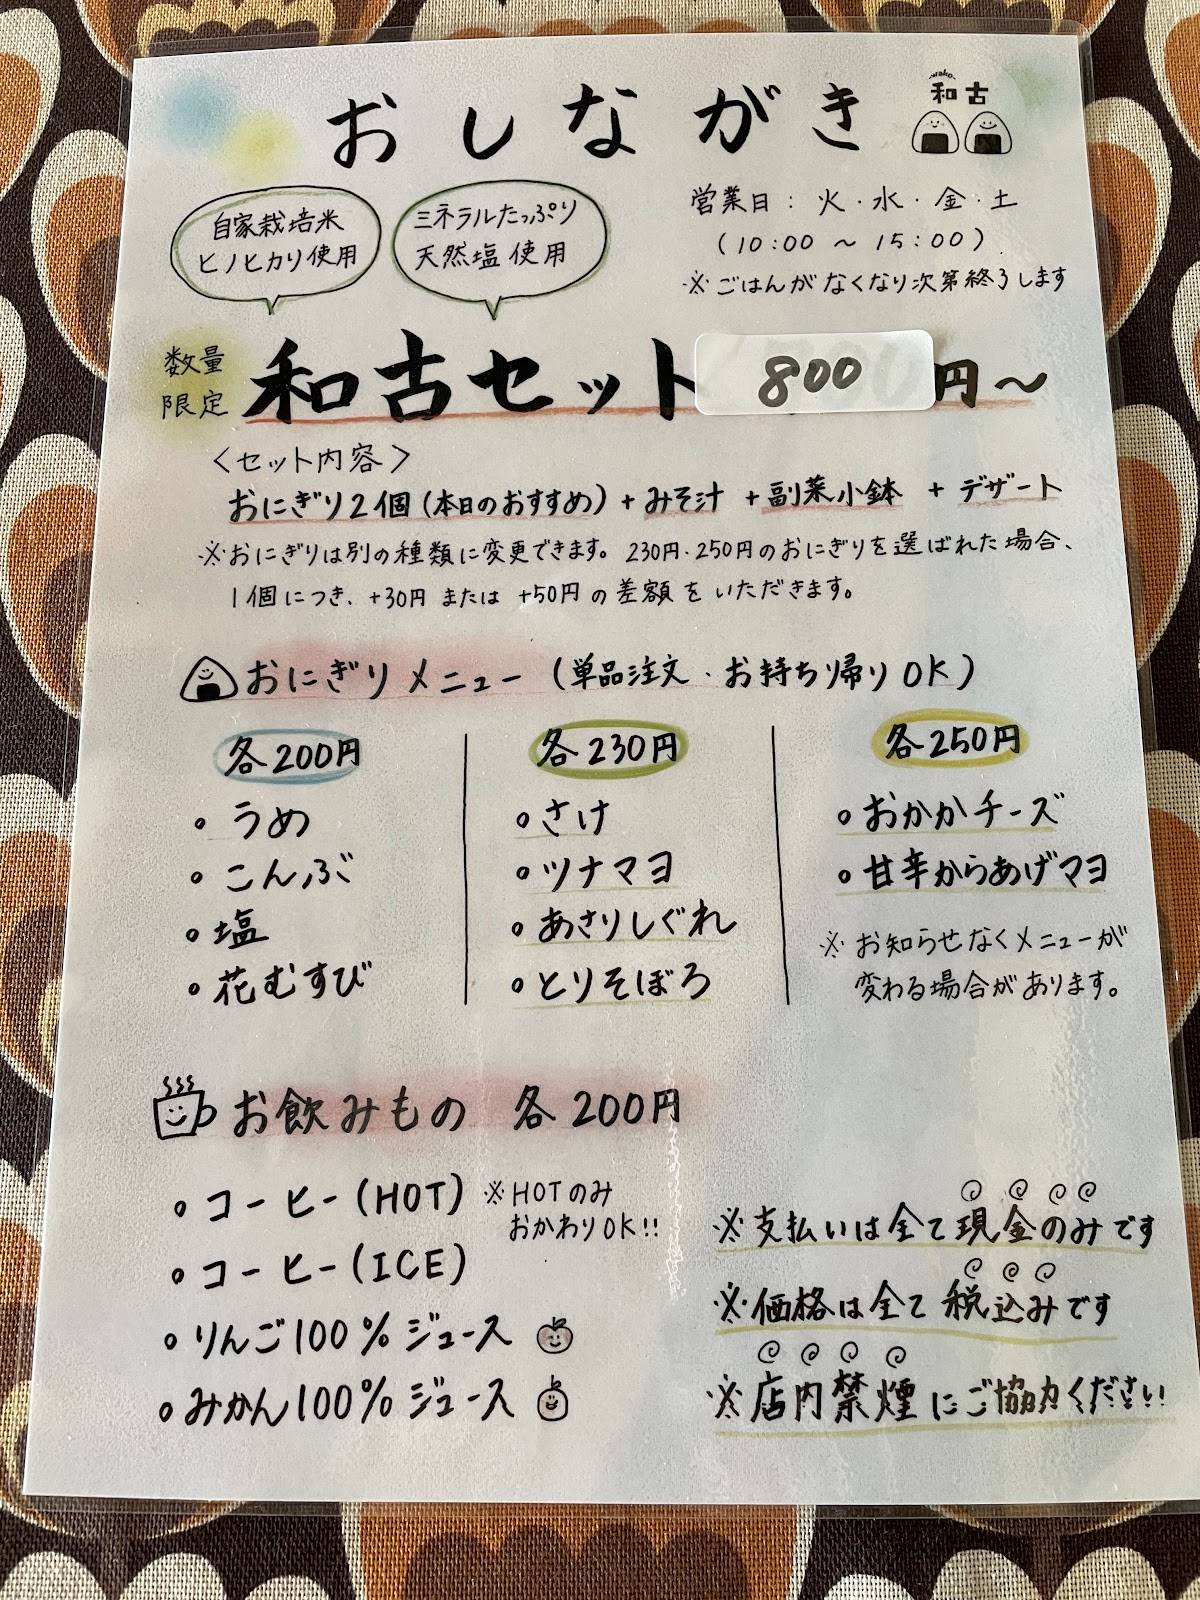 おしながき
-wako-
和古
自家栽培米
ヒノヒカリ使用
ミネラルたっぷり
天然塩使用
営業日：火・水・金・土
（10:00 ～ 15:00）
※ごはんがなくなり次第終了します
数量
限定
和古セット 800円～
＜セット内容＞
おにぎり2個（本日のおすすめ）+みそ汁 +副菜小鉢 +デザート
※おにぎりは別の種類に変更できます。230円・250円のおにぎりを選ばれた場合、
1個につき、+30円 または +50円の差額をいただきます。
おにぎりメニュー（単品注文・お持ち帰りOK）
各200円
・うめ
・こんぶ
・塩
・花むすび
各230円
・さけ
・ツナマヨ
・あさりしぐれ
・とりそぼろ
各250円
・おかかチーズ
・甘辛からあげマヨ
※お知らせなくメニューが
変わる場合があります。
お飲みもの 各200円
・コーヒー（HOT）※HOTのみ
おかわりOK!!
・コーヒー（ICE）
・りんご100%ジュース
・みかん100%ジュース
※支払いは全て現金のみです
※価格は全て税込みです
※店内禁煙にご協力ください!!